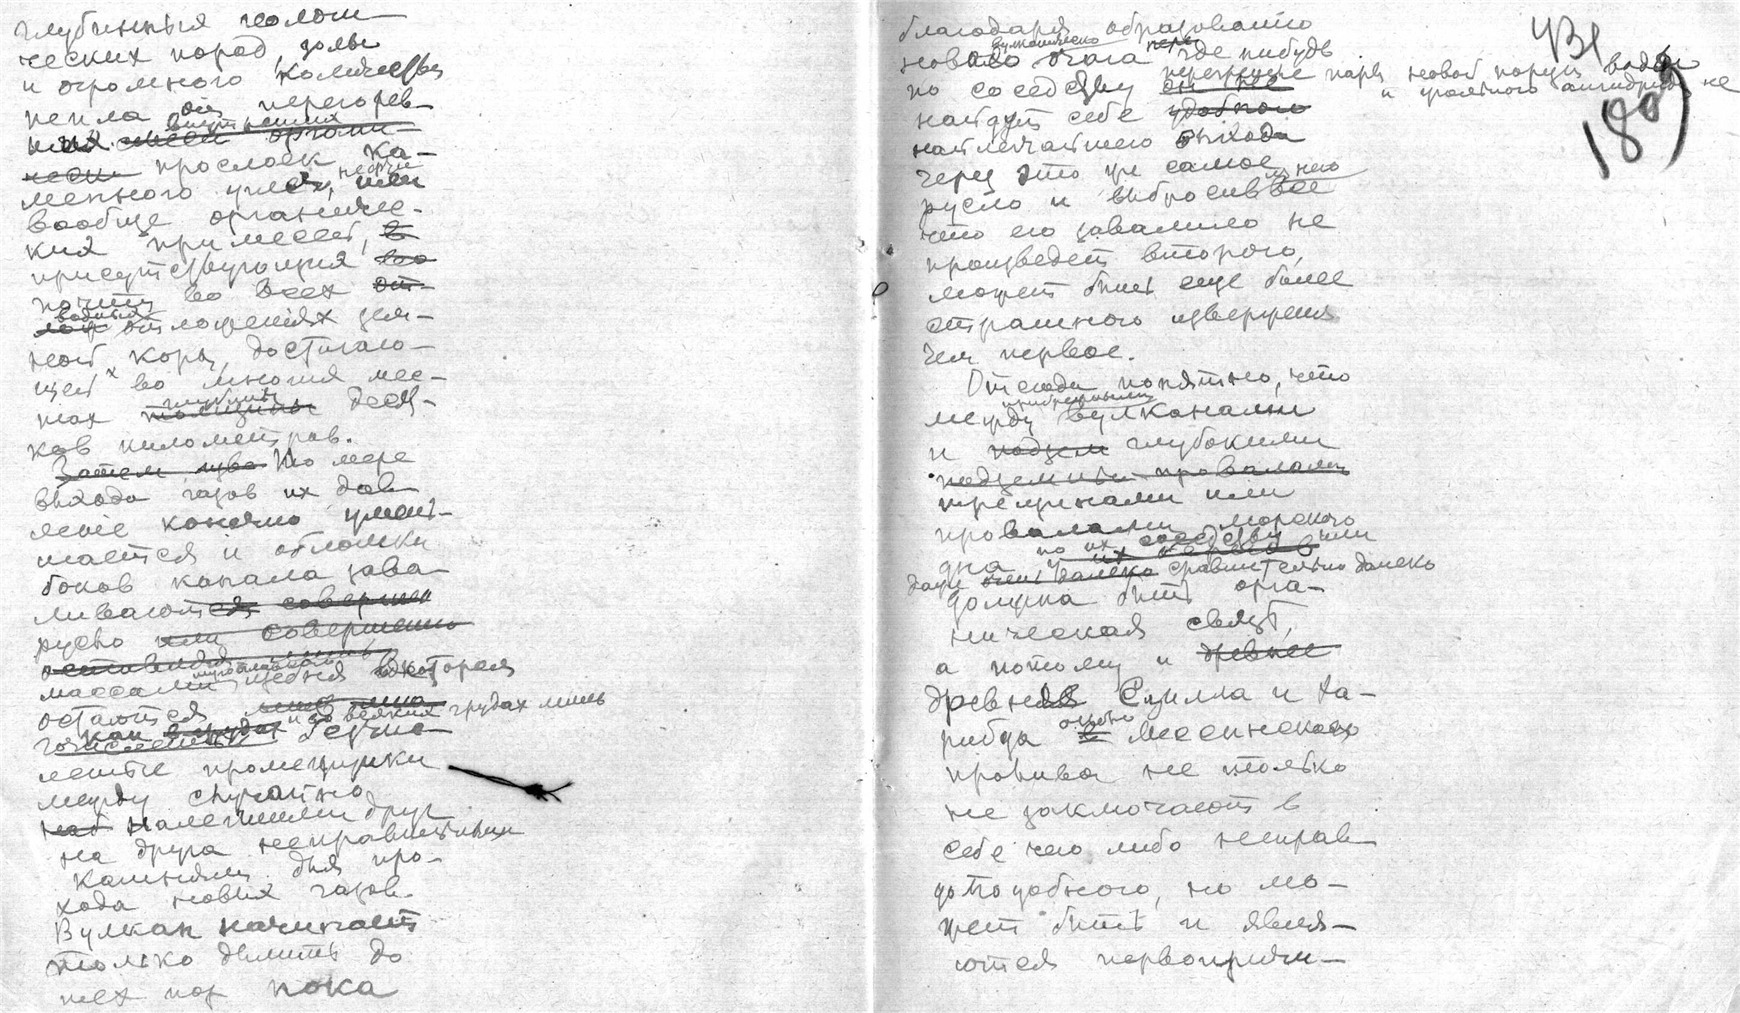 глубинныя геологи
ческих пород, золы
и огромного количества
пепла от перегорев-
ших внутренних органи-
чески прослоек ка-
менного угля, нефти
вообще органичес-
ких примесей, в
присутствующих во
почти во всех от-
лож водных отложениях зем-
ной коры, достигаю-
щей во многих мес-
тах толщины глубины десят-
ков километров.
Затем изве По мере
выхода газов их дав
ление конечно умень-
шается и обломки
боков канала зава-
ливаются соверш
русло или совершенно
оставляя лишь
массами щебня в которой
остаются
как и во всяких грудах лишь
мелкие промежутки
между случайно
налегшими друг
на друга неправильными
камнями для про-
хода новых газов.
Вулкан начинает
только дымить до
тех пор пока
благодаря образованию
нового вулканического очага где нибудь
по соседству перегретые пары новой порции воды
и углистого ангидрида не
найдут себе удобного
наилегчайшего выхода
через это же самое
русло и выбросив все из него
что его завалило не
произведет второго,
может быть еще более
страшного извержения
чем первое.
Отсюда понятно, что
между прибрежными вулканами
и подзем глубокими
подземными провалами
трещинами или
провалами морского
дна по их соседству или
даже очень далеко сравнительно далеко
должна быть орга-
ническая связь,
а потому и древнее
древняя Сцилла и Ха-
рибда около Мессинского
пролива не только
не заключают в
себе чего либо неправ
доподобного, но мо-
жет быть и явля-
ются первопричи-
180